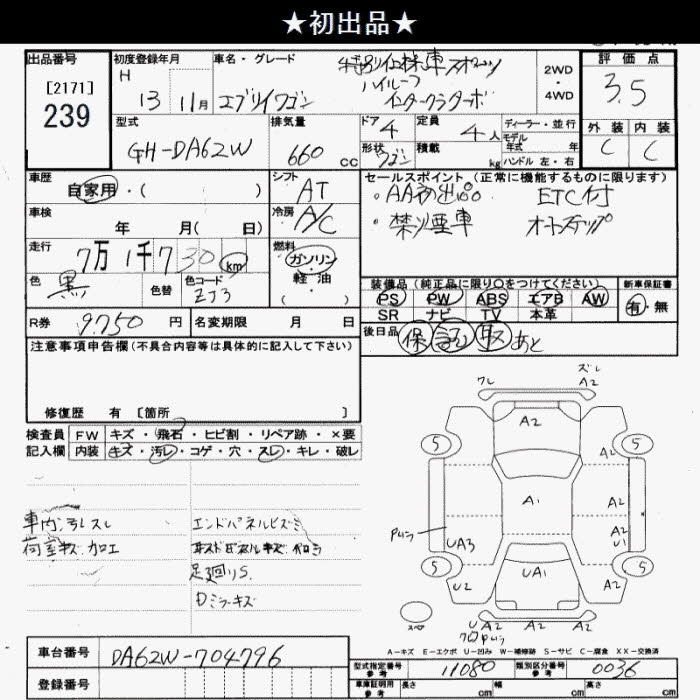 ★初出品★
出品番号
[2171]
239
初度登録年月
H 13 11月
車名・グレード
エブリイワゴン
ハイルーフ
インタークラターボ
2WD
・
4WD
評価点
3.5
外装 内装
C C
型式
GH-DA62W
排気量
660 cc
ドア 4
形状 ワゴン
定員 4人
積載 kg
ディーラー・並行
モデル
年式 年
ハンドル 左・右
車歴
自家用・( )
シフト
AT
車検
年 月( 日)
冷房
A/C
走行
7万1千730 km
燃料
ガソリン・
軽油・
( )
色
黒
色替
色コード
ZJ3
R券 9750 円
名変期限 月 日
セールスポイント(正常に機能するものに限ります)
・AA初出品 ETC付
・禁煙車 オートステップ
装備品(純正品に限り○をつけてください)
PS PW ABS エアB AW
SR ナビ TV 本革
新車保証書
有・無
後日品 保 証 取 あと
注意事項申告欄(不具合内容等は具体的に記入して下さい)
修復歴 有 [箇所 ]
検査員
記入欄
FW キズ・飛石・ヒビ割・リペア跡・×要
内装 キズ・汚レ・コゲ・穴・スレ・キレ・破レ
荷室キズ.加工
足廻りS
Dミラーキズ
ワレ A2
ズレ
A2
5 A2 5
A2
A1 A2
A2
U1
UA3
5 UA1 5
U2 A2
U A2 A2 A2
A-キズ E-エクボ U-凹み W-補修跡 S-サビ C-腐食 XX-交換済
車台番号 DA62W-704796
登録番号
型式指定番号
参考
11080
類別区分番号
参考
0036
車庫証明用
参考
長さ cm
幅 cm
高さ cm